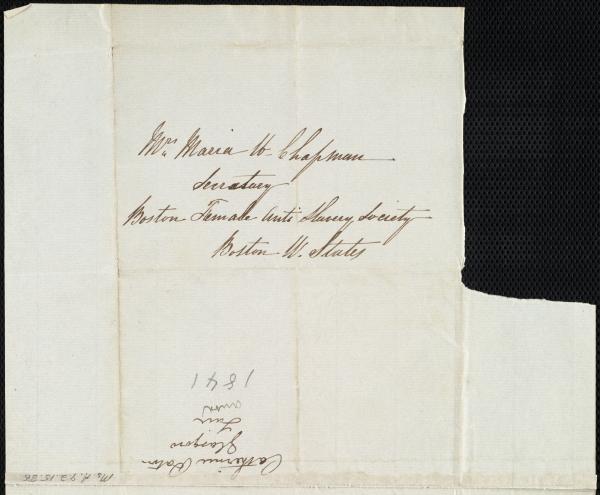 Mrs Maria W Chapman
Secretary
Boston Female Anti Slavery Society
Boston U. States
Catherine Paton
Glasgow
Fair
1841
Ms.A.9.2.15.86